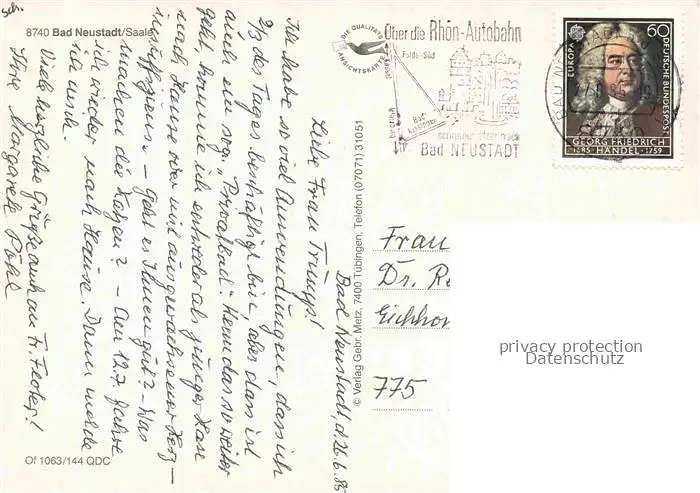 8740 Bad Neustadt/Saale
Bad Neustadt, d. 26.6.85
Liebe Frau Trumpf!
Ich habe so viel Anwendungen, daß ich
2/3 des Tages beschäftigt bin, aber dann ist
auch ein sog. "Privatbad". Wenn das so weiter
geht, komme ich entweder als junger Hase
nach Hause oder mit ausgewachsener Herz-
insuffizienz. – Geht es Ihnen gut? – Was
machen die Katzen? – Am 12.7. fahre
ich wieder nach Hause. Dann melde
ich mich.
Viele herzliche Grüße auch an Fr.
Ihre Margarete Pohl
Of 1063/144 QDC
© Verlag Gebr. Metz, 7400 Tübingen, Telefon (07071) 31051
DIE QUALITÄTS
ANSICHTSKARTE
Über die Rhön-Autobahn
Fulda-Süd
Bad
schneller
nach
Bad NEUSTADT
EUROPA
60
DEUTSCHE BUNDESPOST
GEORG FRIEDRICH
1685 · HÄNDEL · 1759
BAD NEUSTADT
8740
Frau
Dr. Re
Eichho
775
privacy protection
Datenschutz